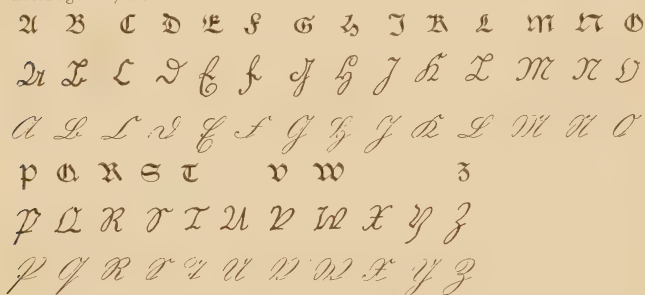 A B C D E F G H I K L M N O
A B C D E F G H J K L M N O
A B C D E F G H J K L M N O
P Q R S T V W Z
P Q R S T U V W X Y Z
P Q R S T U V W X Y Z